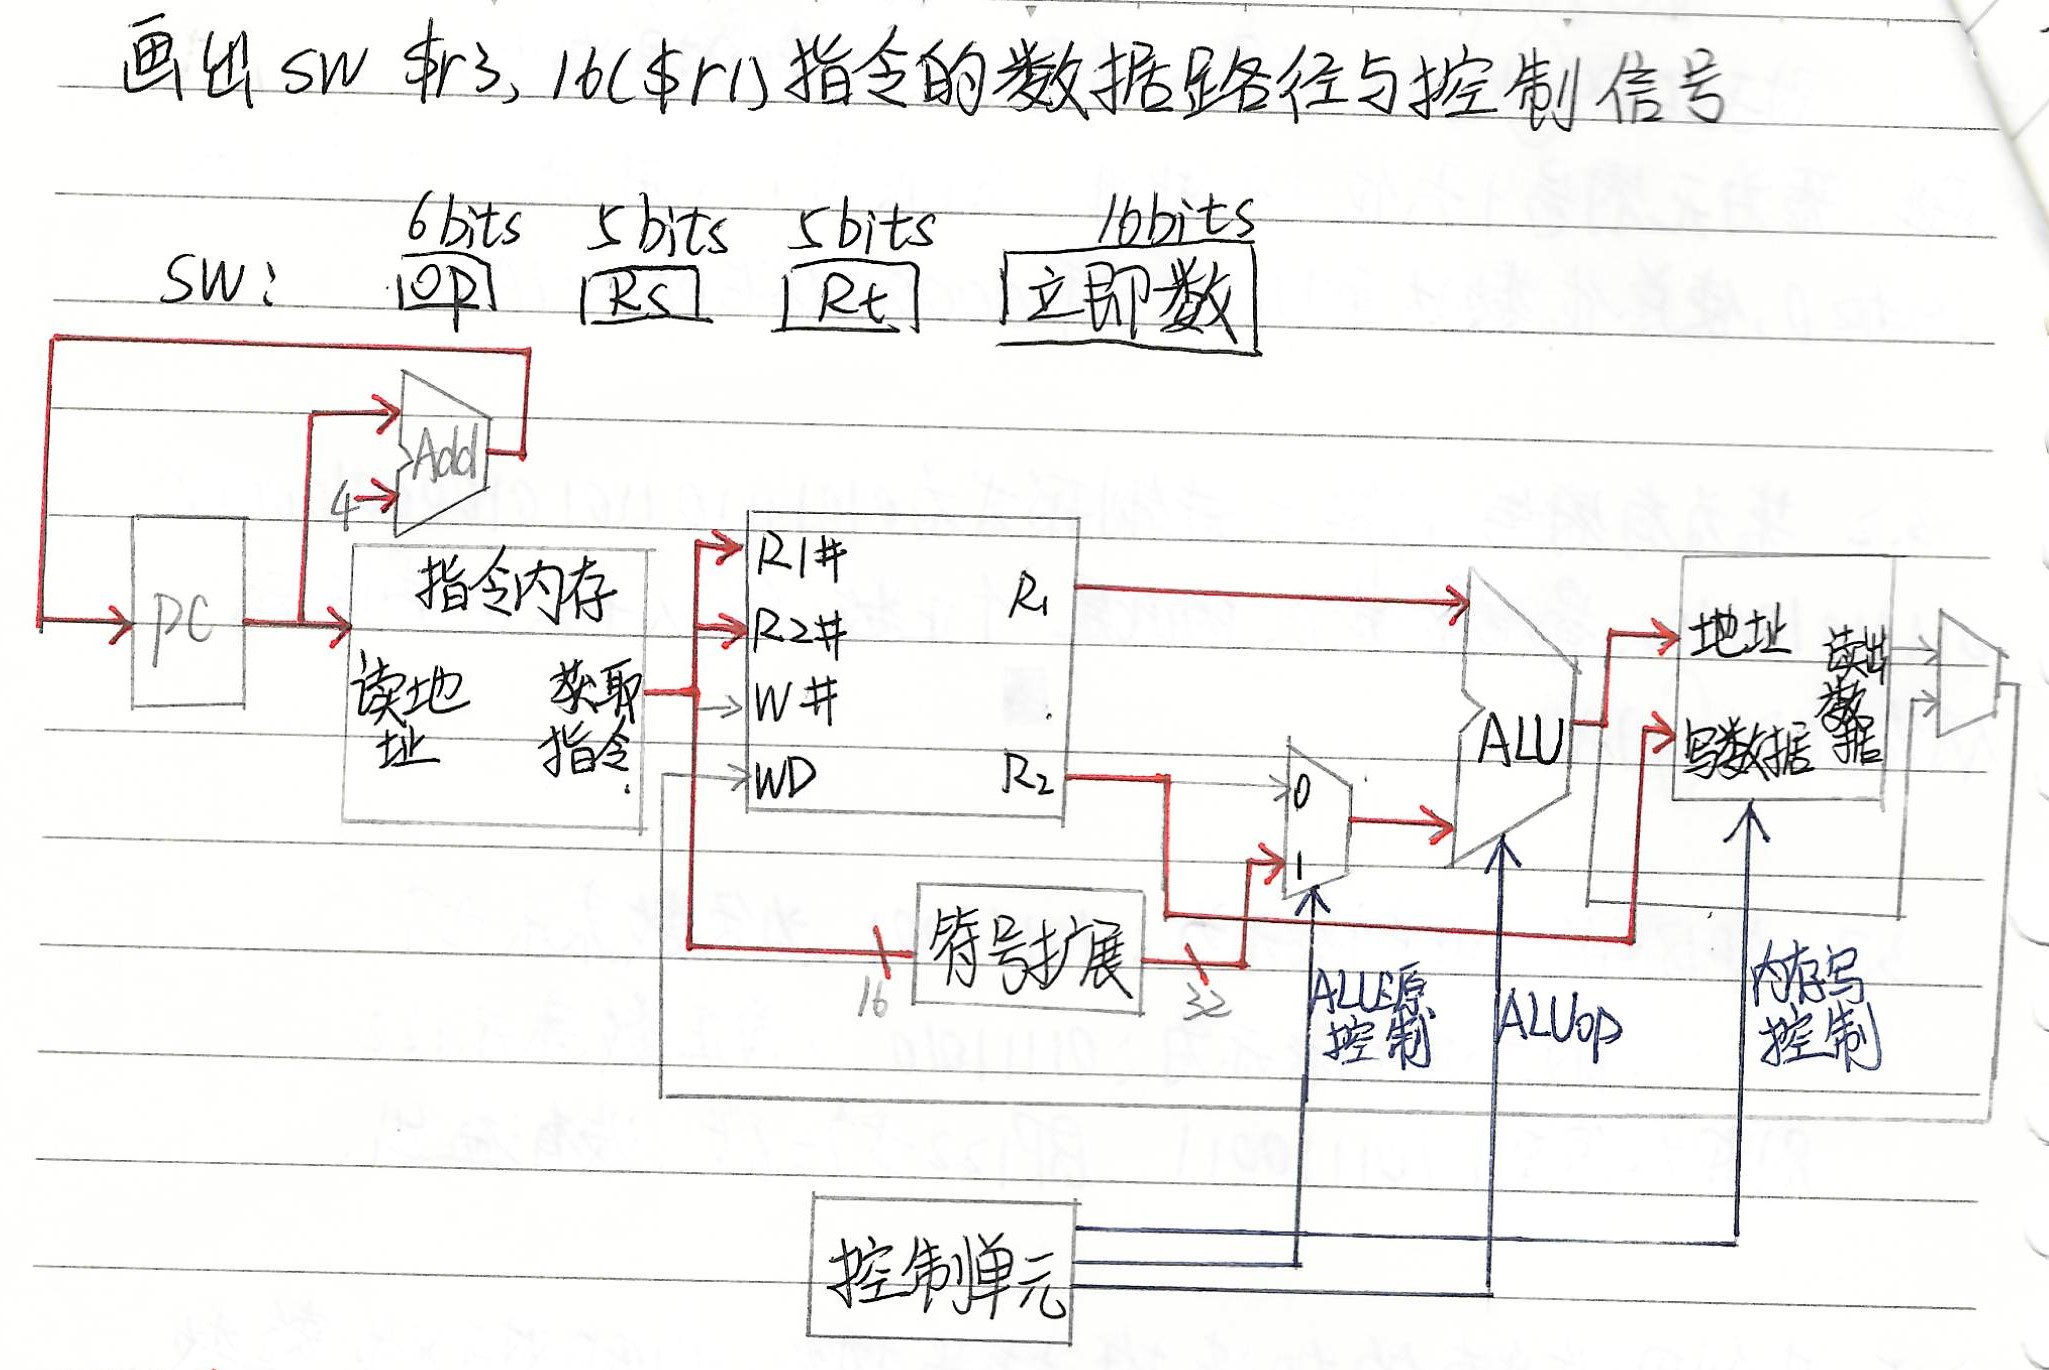 画出 SW $r3, 16($r1) 指令的数据路径与控制信号
6bits 5bits 5bits 16bits
SW: OP Rs Rt 立即数
Add
4
PC
指令内存
读地址
获取指令
R1#
R2#
W#
WD
R1
R2
0
1
ALU
地址
写数据
读出数据
16
符号扩展
32
ALU源控制
ALUop
内存写控制
控制单元